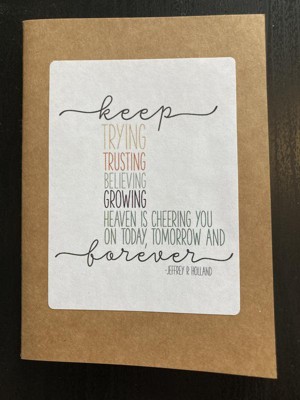 keep
TRYING
TRUSTING
BELIEVING
GROWING
HEAVEN IS CHEERING YOU
ON TODAY, TOMORROW AND
forever
-JEFFREY R HOLLAND